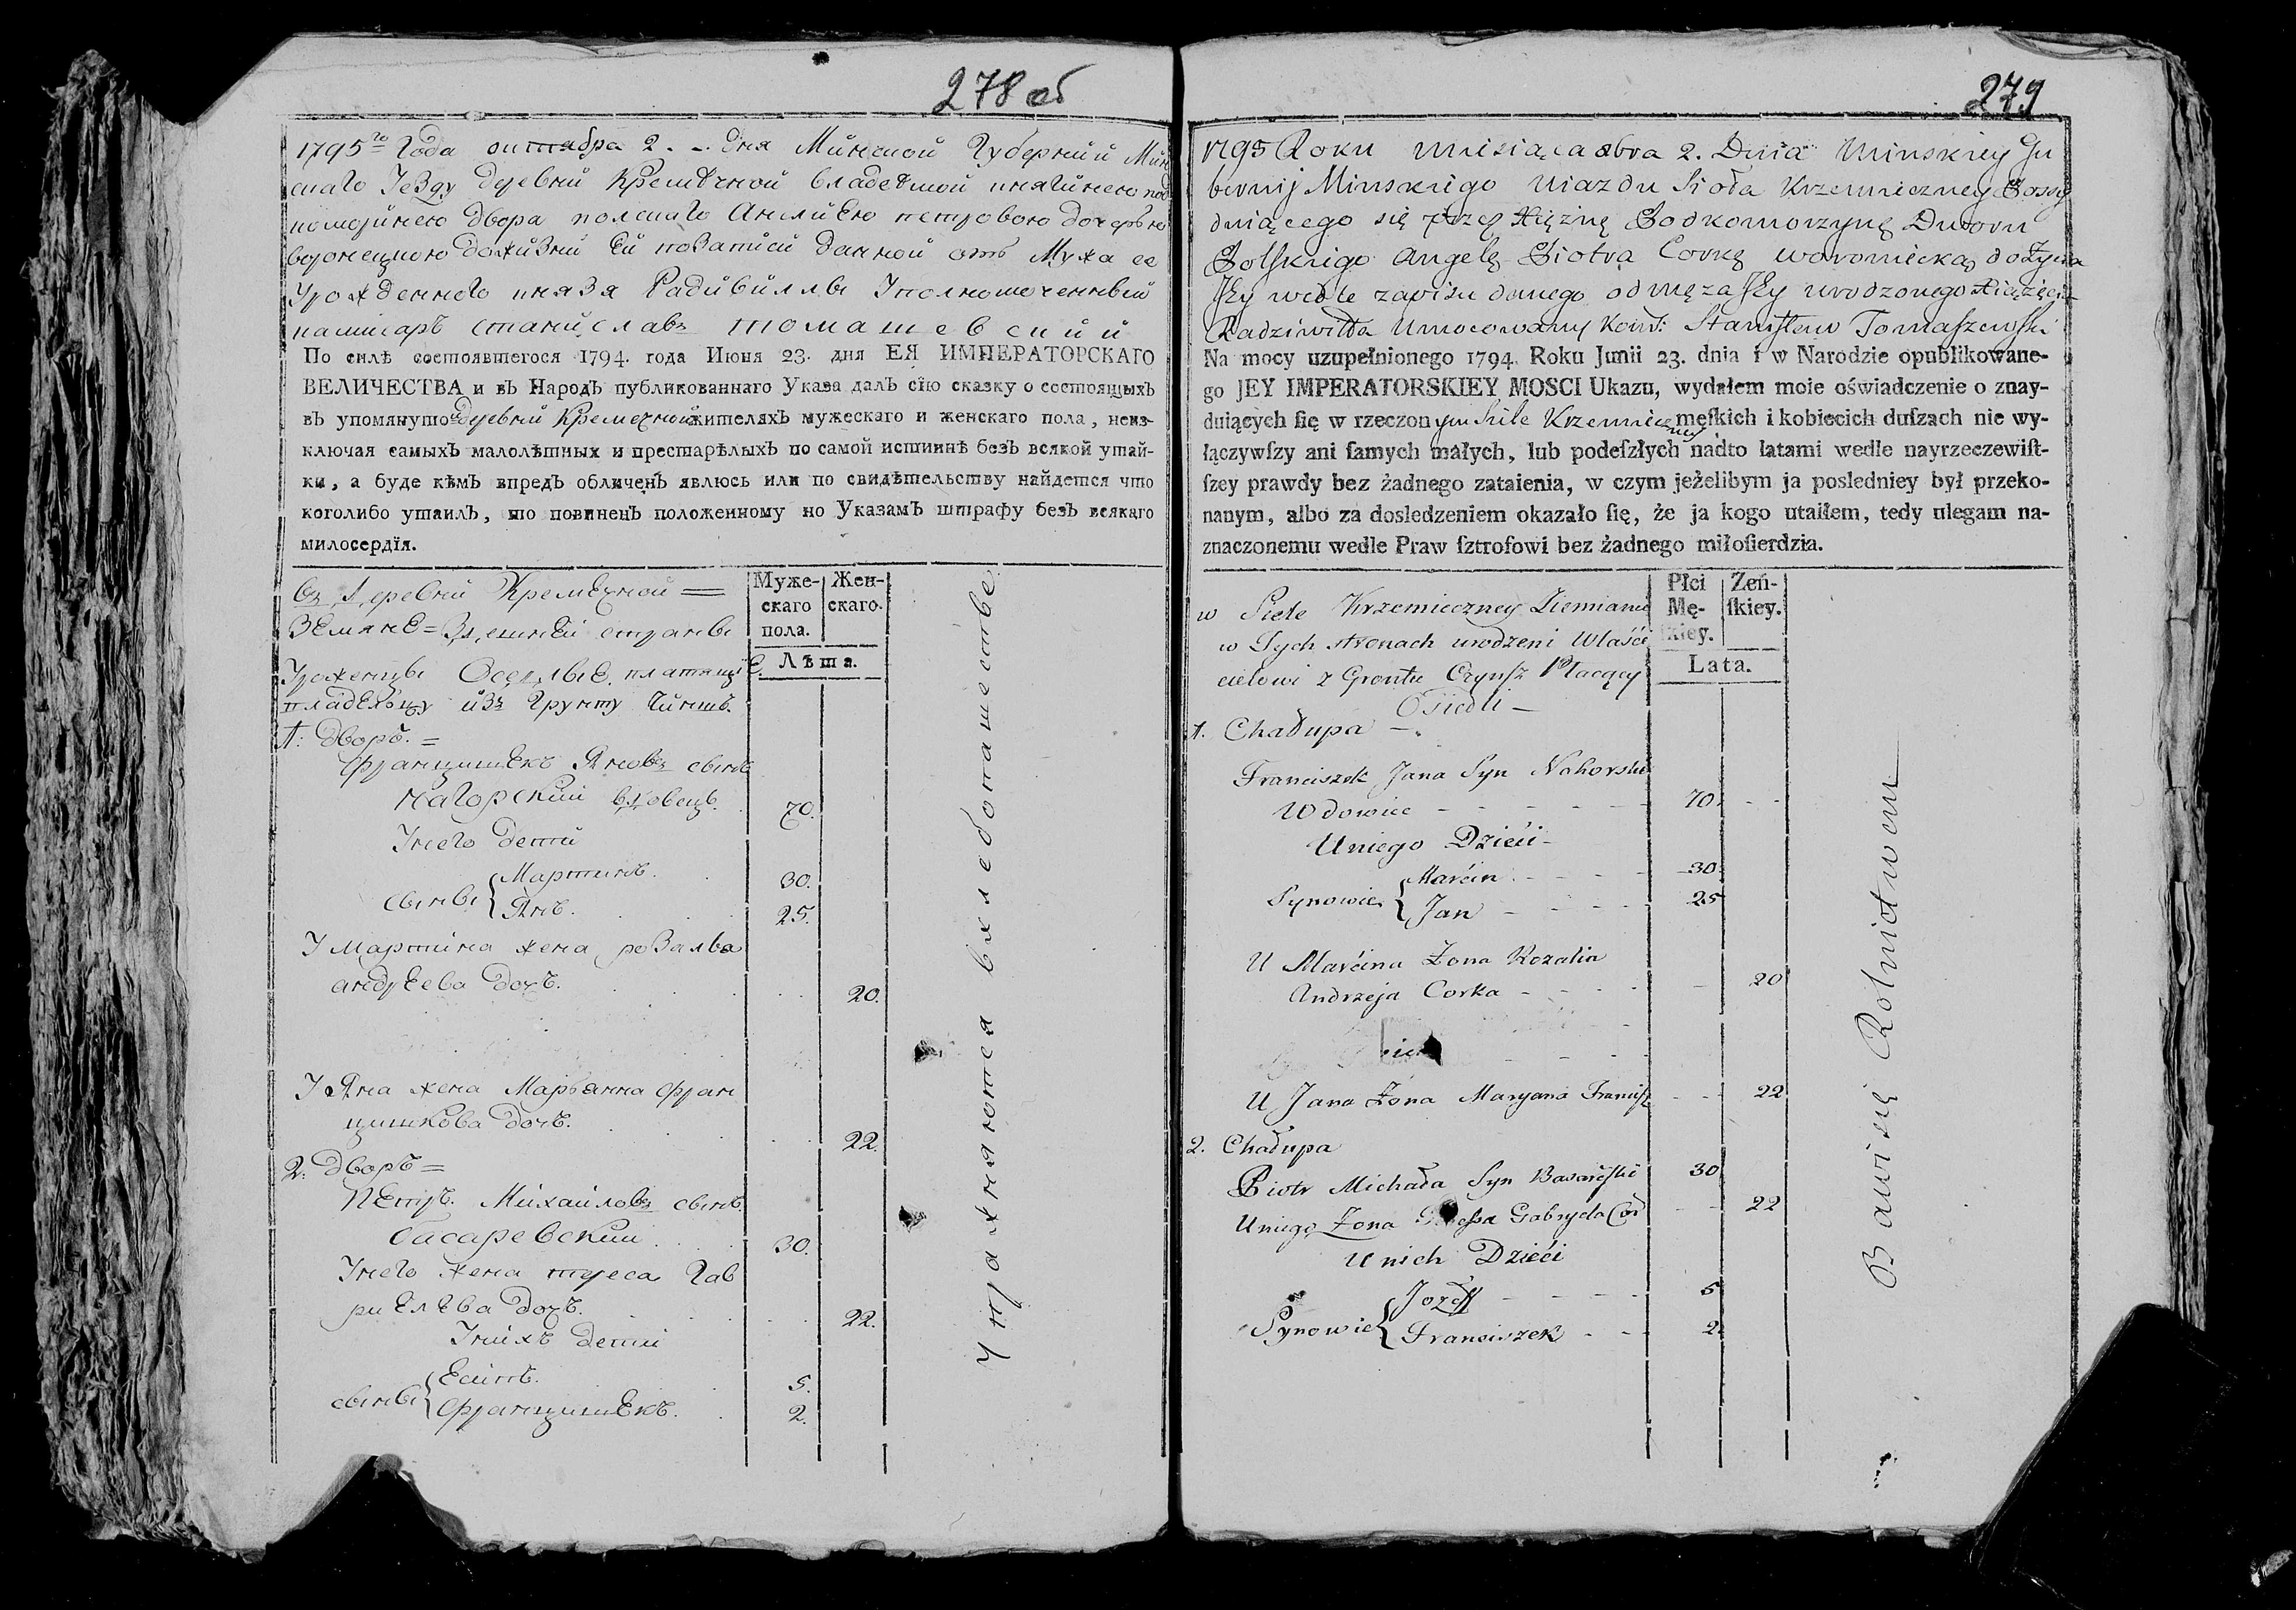 278 об
1795го Года октабра 2. дня Минской Губернии Мин
скаго Уезду деревни Кремечной владеемой княгинею под
коморинею двора полскаго Анелиею петровою дочерью
воронецкою доживни Ей по записи данной отъ Мужа ее
Урожденного князя Радивиллы Уполномоченный
камисаръ станиславъ томашевский
По силѣ состоявшегося 1794. года Июня 23. дня ЕЯ ИМПЕРАТОРСКАГО
ВЕЛИЧЕСТВА и въ Народъ публикованнаго Указа далъ сїю сказку о состоящыхъ
въ упомянутой деревни Кремечной жителяхъ мужескаго и женскаго пола, неиз-
ключая самыхъ малолѣтныхъ и престарѣлыхъ по самой истиннѣ безъ всякой утай-
ки, а буде кѣмъ впредъ обличенъ явлюсь или по свидѣтельству найдется что
коголибо утаилъ, то повиненъ положенному по Указамъ штрафу безъ всякаго
милосердїя.
Муже-
скаго
пола.
Жен-
скаго.
Лѣта.
Въ Деревни Кремечной =
Земяне = Здешней страны
Уроженцы Оседлые платящие
владельцу изъ Грунту Чиншъ
1: Дворъ. =
францишекъ Яновъ сынъ
нагорский вдовецъ. 70.
У него дети
сыны { Мартинъ. 30.
Янъ. 25.
У Мартина жена розалья
андреева дочь. 20.
У Яна жена Марьянна фран
цишкова дочь. 22.
2: Дворъ =
Петръ Михаиловъ сынъ
басаревский 30.
У него жена тереса Гав
риелева дочь. 22.
У них дети
сыны { Есипъ. 5.
францишекъ. 2.
упражняются в хледопашестве
279
1795 Roku miesiąca 8bra 2. Dnia Minskiey Gu
bernij Minskiego Uiazdu Sioła Krzemieczney Possy
dniącego się przez Xiężnę Podkomorzynę Dworu
Polskiego Angelę Piotra Corkę woroniecką dożywo
Jey wedle zapisu danego od męza Jey urodzonego Xiążęcia
Radziwiłła Umocowany Kom: Stanisław Tomaszewski
Na mocy uzupełnionego 1794. Roku Junii 23. dnia i w Narodzie opublikowane-
go JEY IMPERATORSKIEY MOSCI Ukazu, wydałem moie oświadczenie o znay-
duiących ſię w rzeczonym Siele Krzemieczney męſkich i kobiecich duſzach nie wy-
łączywſzy ani ſamych małych, lub podeſzłych nadto latami wedle nayrzeczewiſt-
ſzey prawdy bez żadnego zataienia, w czym jeżelibym ja posledniey był przeko-
nanym, albo za dosledzeniem okazało ſię, że ja kogo utaiłem, tedy ulegam na-
znaczonemu wedle Praw ſztrofowi bez żadnego miłoſierdzia.
Płci
Mę-
ſkiey.
Zeń-
ſkiey.
Lata.
w Siele Krzemieczney Ziemianie
w Tych stronach urodzeni Właści
cielowi z Gruntu Czynsz Płacący
Osiedli —
1. Chałupa —
Franciszek Jana Syn Nahorski
Wdowiec 70.
U niego Dzieci —
Synowie { Marcin 30
Jan 25
U Marcina Żona Rozalia
Andrzeja Corka 20
U Jana Żona Maryana Francisz 22
2. Chałupa
Piotr Michała Syn Basarejski 30
U niego Żona Gabryela Cor 22
U nich Dzieci
Synowie { Jozeff 5
Franciszek 2
Bawi się Rolnictwem